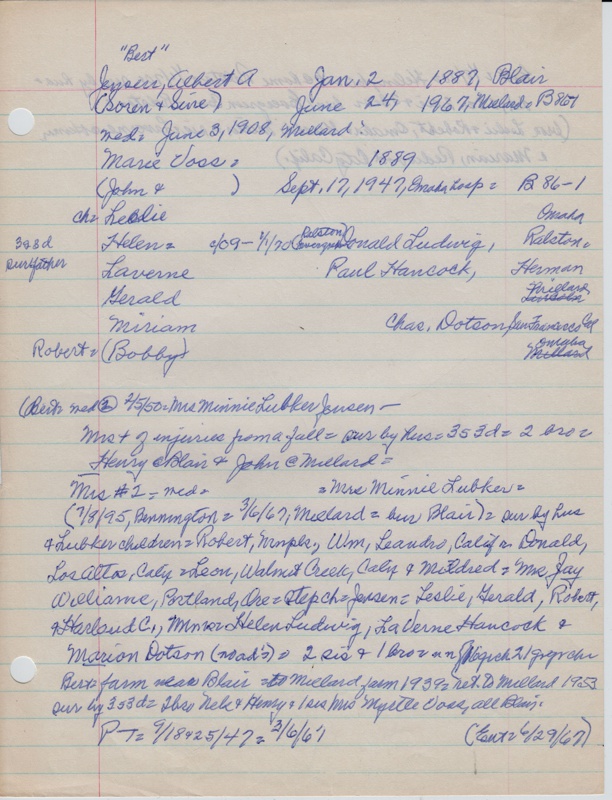 "Bert"
Jensen, Albert A Jan. 2 1887, Blair
(Soren & Sine) June 24, 1967, Millard = B 86-1
med = June 3, 1908, Millard
Marie Voss = 1889
(John & ) Sept. 17, 1947, Omaha hosp = B 86-1
ch = Leslie Omaha
3s 3d Helen = c/09 - 1/1/70 Ralston Donald Ludwig, Ralston =
sur father Laverne Paul Hancock, Herman
Gerald Millard Lincoln
Miriam Chas. Dotson San Francisco Cal
Robert = (Bobby) Omaha Millard
(Bert = med ② 2/5/50 = Mrs Minnie Lubker Jensen -
Mrs + of injuries from a fall = sur by hus = 3s 3d = 2 bro =
Henry @ Blair & John @ Millard =
Mrs # 1 = med = = Mrs Minnie Lubker =
(7/8/95, Bennington = 3/6/67, Millard = bur Blair) = sur by hus
& Lubker children = Robert, Mnpls, Wm, Leandro, Calif = Donald,
Los Altos, Calif = Leon, Walnut Creek, Calif & Mildred = Mrs Jay
Williams, Portland, Ore = Step ch = Jensen = Leslie, Gerald, Robert,
& Harland C., Mmes Helen Ludwig, LaVerne Hancock &
Marion Dotson = 2 sis & 1 bro = 21 gr gr chr
Bert = farm near Blair = to Millard farm 1939 = ret. to Millard 1953
sur by 3s 3d = 2 bro Nels & Henry & 1 sis Mrs Myrtle Voss, all Blair.
P T = 9/18 & 25/47 = 3/6/67 (Ent = 6/29/67)